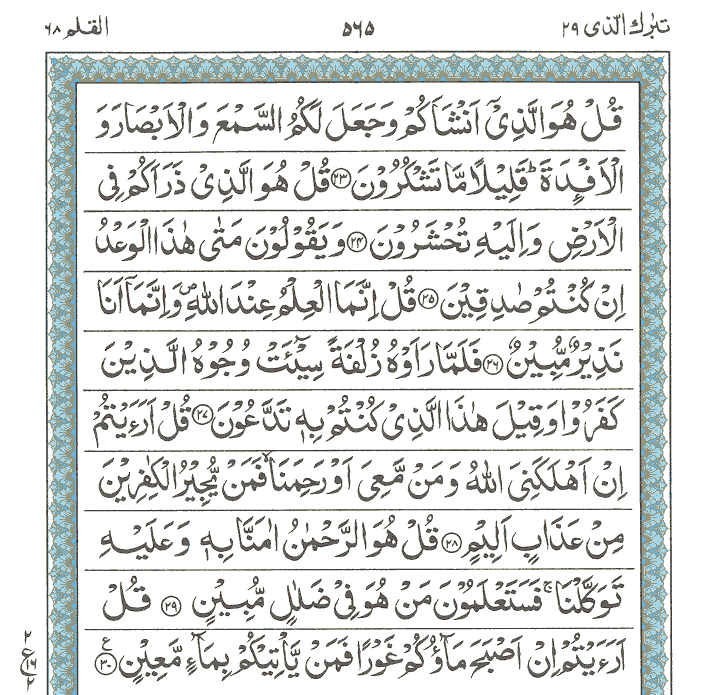 تبٰرك الّذی ٢٩ ٥٦٥ القلم ٦٨
قُلْ هُوَ الَّذِىْۤ اَنْشَاَكُمْ وَجَعَلَ لَكُمُ السَّمْعَ وَالْاَبْصَارَ وَ
الْاَفْـِٕدَةَ ؕ قَلِيْلًا مَّا تَشْكُرُوْنَ ﴿٢٣﴾ قُلْ هُوَ الَّذِىْ ذَرَاَكُمْ فِى
الْاَرْضِ وَاِلَيْهِ تُحْشَرُوْنَ ﴿٢٤﴾ وَيَقُوْلُوْنَ مَتٰى هٰذَا الْوَعْدُ
اِنْ كُنْتُمْ صٰدِقِيْنَ ﴿٢٥﴾ قُلْ اِنَّمَا الْعِلْمُ عِنْدَ اللّٰهِ ۪ وَاِنَّمَاۤ اَنَا
نَذِيْرٌ مُّبِيْنٌ ﴿٢٦﴾ فَلَمَّا رَاَوْهُ زُلْفَةً سِيْٓـَٔتْ وُجُوْهُ الَّذِيْنَ
كَفَرُوْا وَقِيْلَ هٰذَا الَّذِىْ كُنْتُمْ بِهٖ تَدَّعُوْنَ ﴿٢٧﴾ قُلْ اَرَءَيْتُمْ
اِنْ اَهْلَكَنِىَ اللّٰهُ وَمَنْ مَّعِىَ اَوْ رَحِمَنَا ۙ فَمَنْ يُّجِيْرُ الْكٰفِرِيْنَ
مِنْ عَذَابٍ اَلِيْمٍ ﴿٢٨﴾ قُلْ هُوَ الرَّحْمٰنُ اٰمَنَّا بِهٖ وَعَلَيْهِ
تَوَكَّلْنَا ۚ فَسَتَعْلَمُوْنَ مَنْ هُوَ فِىْ ضَلٰلٍ مُّبِيْنٍ ﴿٢٩﴾ قُلْ
اَرَءَيْتُمْ اِنْ اَصْبَحَ مَآؤُكُمْ غَوْرًا فَمَنْ يَّاْتِيْكُمْ بِمَآءٍ مَّعِيْنٍ ﴿٣٠﴾ ع
٢
ع ١٦
٢